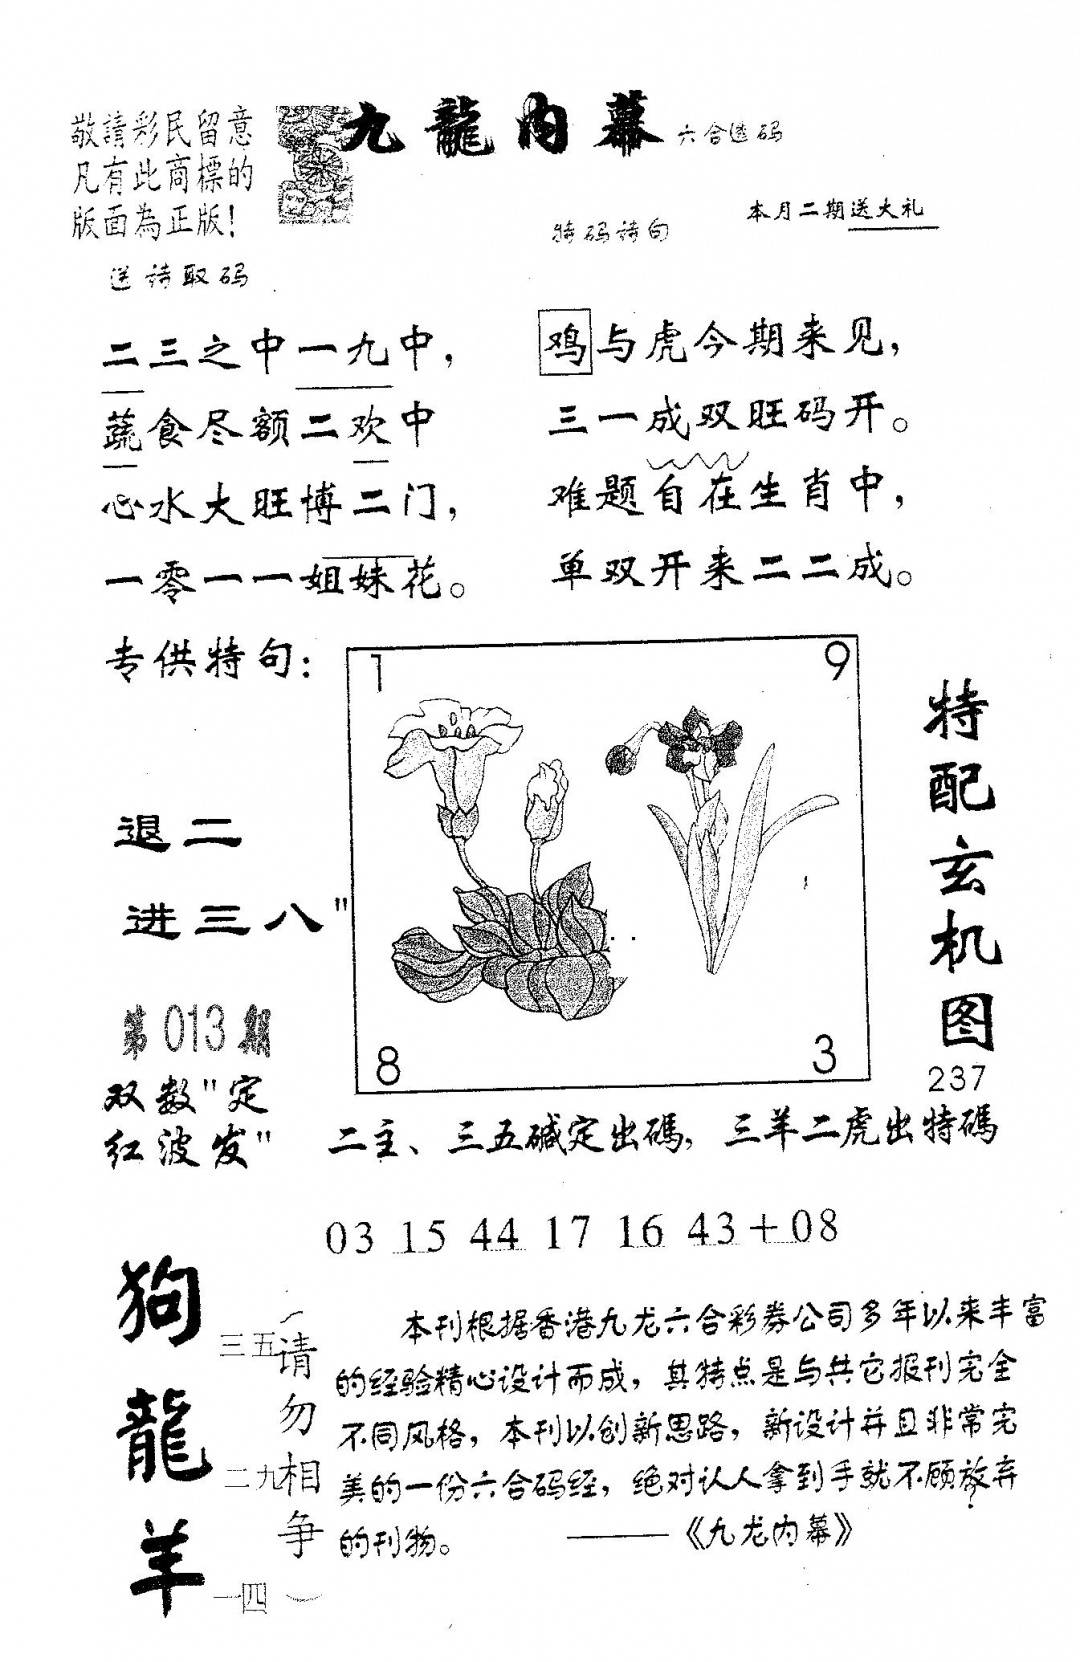 敬請彩民留意
凡有此商標的
版面為正版!
九龍内幕
六合透码
本月二期送大礼
特码诗句
送诗取码
二三之中一九中，
蔬食尽额二欢中
心水大旺博二门，
一零一一姐妹花。
鸡与虎今期来见，
三一成双旺码开。
难题自在生肖中，
单双开来二二成。
专供特句：
退二
进三八"
1
9
8
3
特配玄机图
237
第013期
双数"定
红波发"
二主、三五碱定出碼，三羊二虎出特碼
03 15 44 17 16 43+08
狗
三五
龍
二九
羊
一四
（请勿相争）
本刊根据香港九龙六合彩券公司多年以来丰富
的经验精心设计而成，其特点是与其它报刊完全
不同风格，本刊以创新思路，新设计并且非常完
美的一份六合码经，绝对认人拿到手就不顾放弃
的刊物。 ——《九龙内幕》